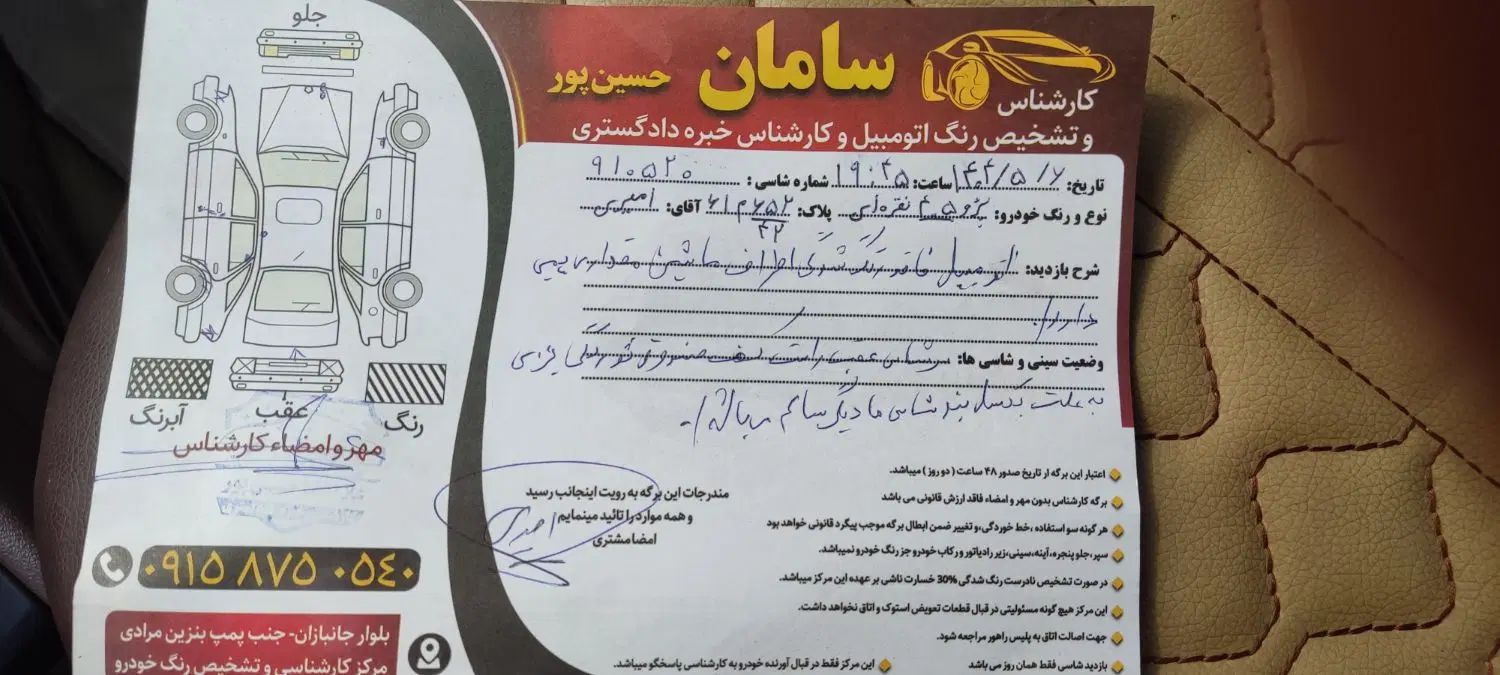 جلو
سامان
حسین‌پور
کارشناس
و تشخیص رنگ اتومبیل و کارشناس خبره دادگستری
تاریخ: ساعت: ۱۹:۴۵ شماره شاسی: ۹۱۰۵۲۰
نوع و رنگ خودرو: پژو ۴۰۵ نقره‌ای پلاک: ۶۵۲ م ۶۱ ۴۲ آقای:
شرح بازدید: اتومبیل فاقد رنگ شدگی اطراف ماشین مقداری
دارد.
وضعیت سینی و شاسی ها: شاسی عقب راست کف صندوق خوردگی جزئی
به علت بکسل بند شاسی ها دیگر سالم میباشد.
آبرنگ
عقب
رنگ
مهر و امضاء کارشناس
۰۹۱۵ ۸۷۵ ۰۵۴۰
بلوار جانبازان- جنب پمپ بنزین مرادی
مرکز کارشناسی و تشخیص رنگ خودرو
مندرجات این برگه به رویت اینجانب رسید
و همه موارد را تائید مینمایم
امضا مشتری
اعتبار این برگه از تاریخ صدور ۴۸ ساعت ( دو روز ) میباشد.
برگه کارشناس بدون مهر و امضاء فاقد ارزش قانونی می باشد
هر گونه سو استفاده ،خط خوردگی،و تغییر ضمن ابطال برگه موجب پیگرد قانونی خواهد بود
سپر،جلو پنجره، آینه،سینی،زیر رادیاتور و رکاب خودرو جز رنگ خودرو نمیباشد.
در صورت تشخیص نادرست رنگ شدگی 30% خسارت ناشی بر عهده این مرکز میباشد.
این مرکز هیچ گونه مسئولیتی در قبال قطعات تعویض استوک و اتاق نخواهد داشت.
جهت اصالت اتاق به پلیس راهور مراجعه شود.
بازدید شاسی فقط همان روز می باشد
این مرکز فقط در قبال آورنده خودرو به کارشناسی پاسخگو میباشد.